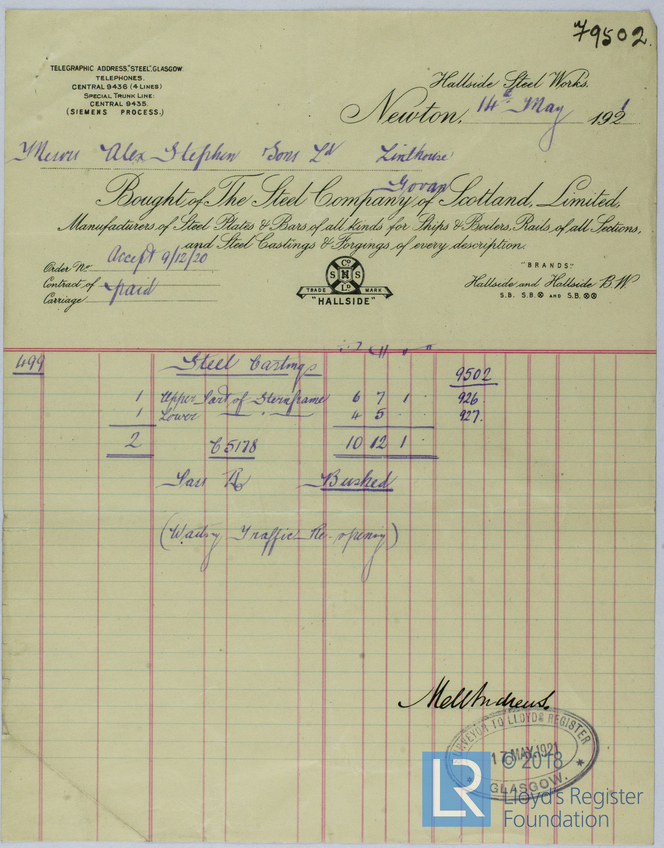 79502.
TELEGRAPHIC ADDRESS, "STEEL", GLASGOW.
TELEPHONES.
CENTRAL 9436 (4 LINES)
SPECIAL TRUNK LINE
CENTRAL 9435.
(SIEMENS PROCESS.)
Hallside Steel Works.
Newton, 14th May 1921
Messrs Alex Stephen & Sons Ld Linthouse
Govan
Bought of The Steel Company of Scotland, Limited,
Manufacturers of Steel Plates & Bars of all kinds for Ships & Boilers, Rails of all Sections,
and Steel Castings & Forgings of every description.
Order No. Accept 9/12/20
Contract of
Carriage paid
S Co N S Ld
TRADE MARK
"HALLSIDE"
"BRANDS".
Hallside and Hallside B.W
S.B. S.B.⊗ AND S.B.⊗⊗
499 Steel Castings 9502
1 Upper Part of Sternframe 6 7 1 · 926
1 Lower " " 4 5 · · 927.
2 C5178 10 12 1 ·
Busked
(Waiting Traffic Re-opening)
SURVEYOR TO LLOYD'S REGISTER
17 MAY 1921
GLASGOW.
© 2018
LR Lloyd's Register
Foundation